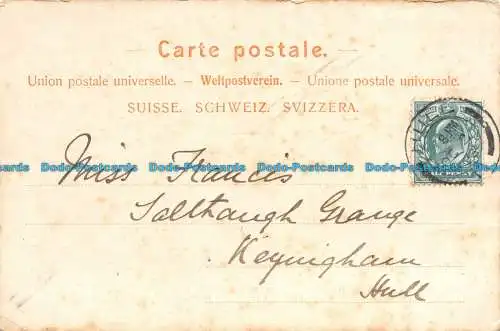 Carte postale.
Union postale universelle. – Weltpostverein. – Unione postale universale.
SUISSE. SCHWEIZ. SVIZZERA.
Dodo-Postcards Dodo-Postcards Dodo-Postcards Dodo-Postcards
Miss Francis
Salthaugh Grange
Keyingham
Hull